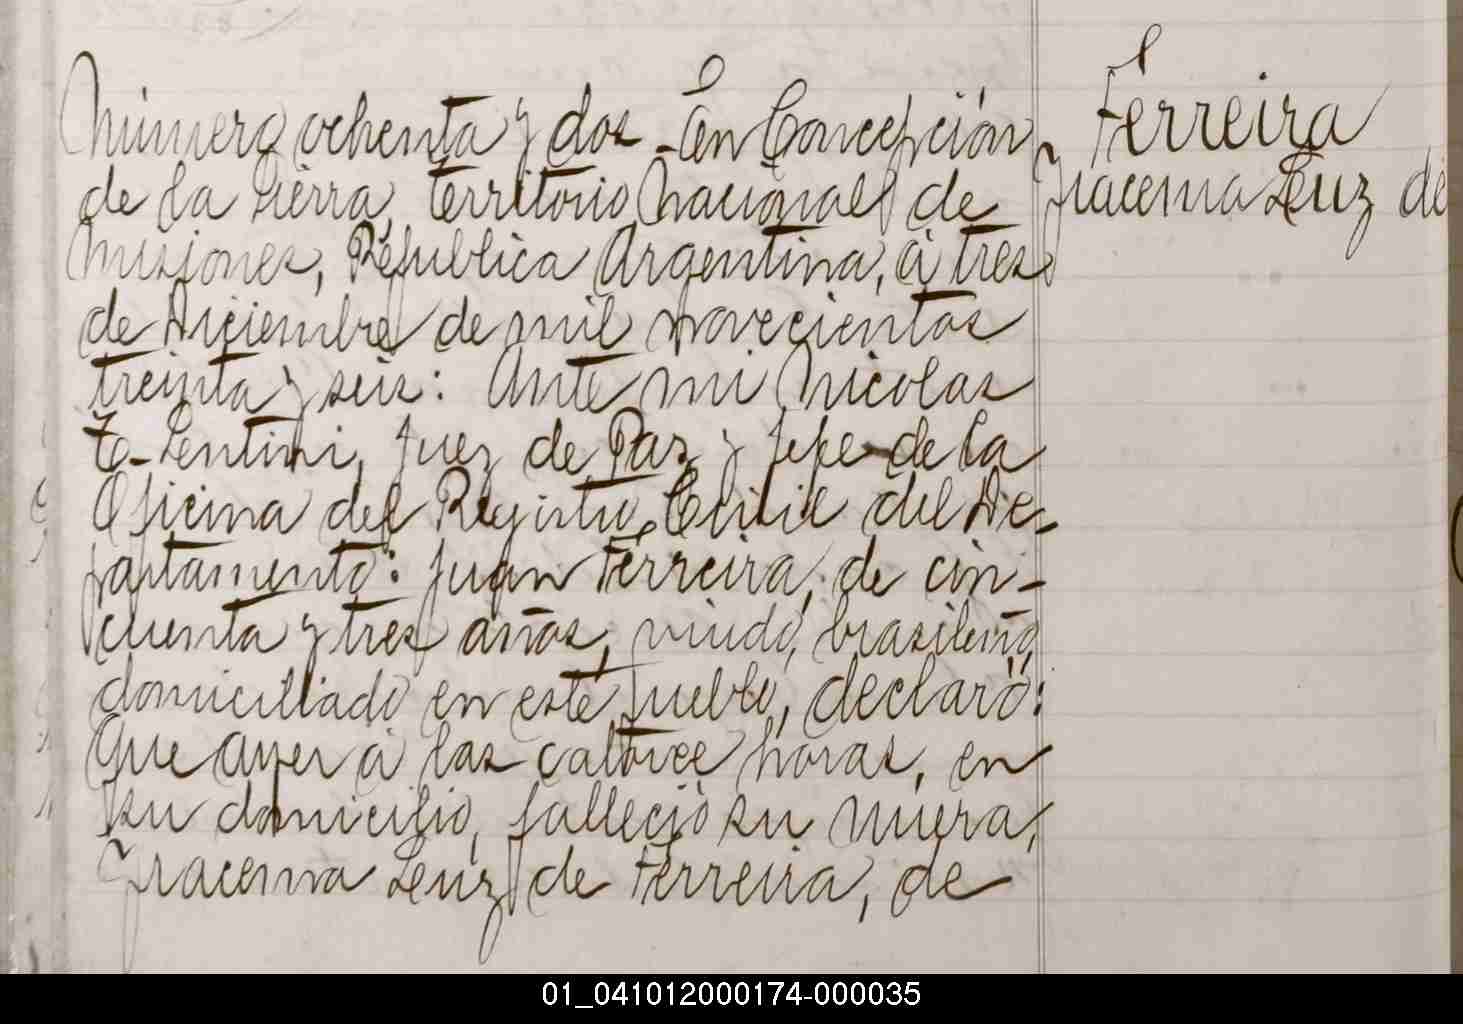 Número ochenta y dos - En Concepción
de la Sierra, territorio Nacional de
Misiones, República Argentina, á tres
de Diciembre de mil novecientos
treinta y seis: Ante mi Nicolas
Lentini, Juez de Paz y Jefe de la
Oficina del Registro Civil del De-
partamento: Juan Ferreira, de cin-
cuenta y tres años, viudo, brasileño,
domiciliado en este pueblo, declaró:
Que ayer á las catorce horas, en
su domicilio, falleció su nuera,
Iracema Leuz de Ferreira, de
Ferreira
Iracema Leuz de
01_041012000174-000035